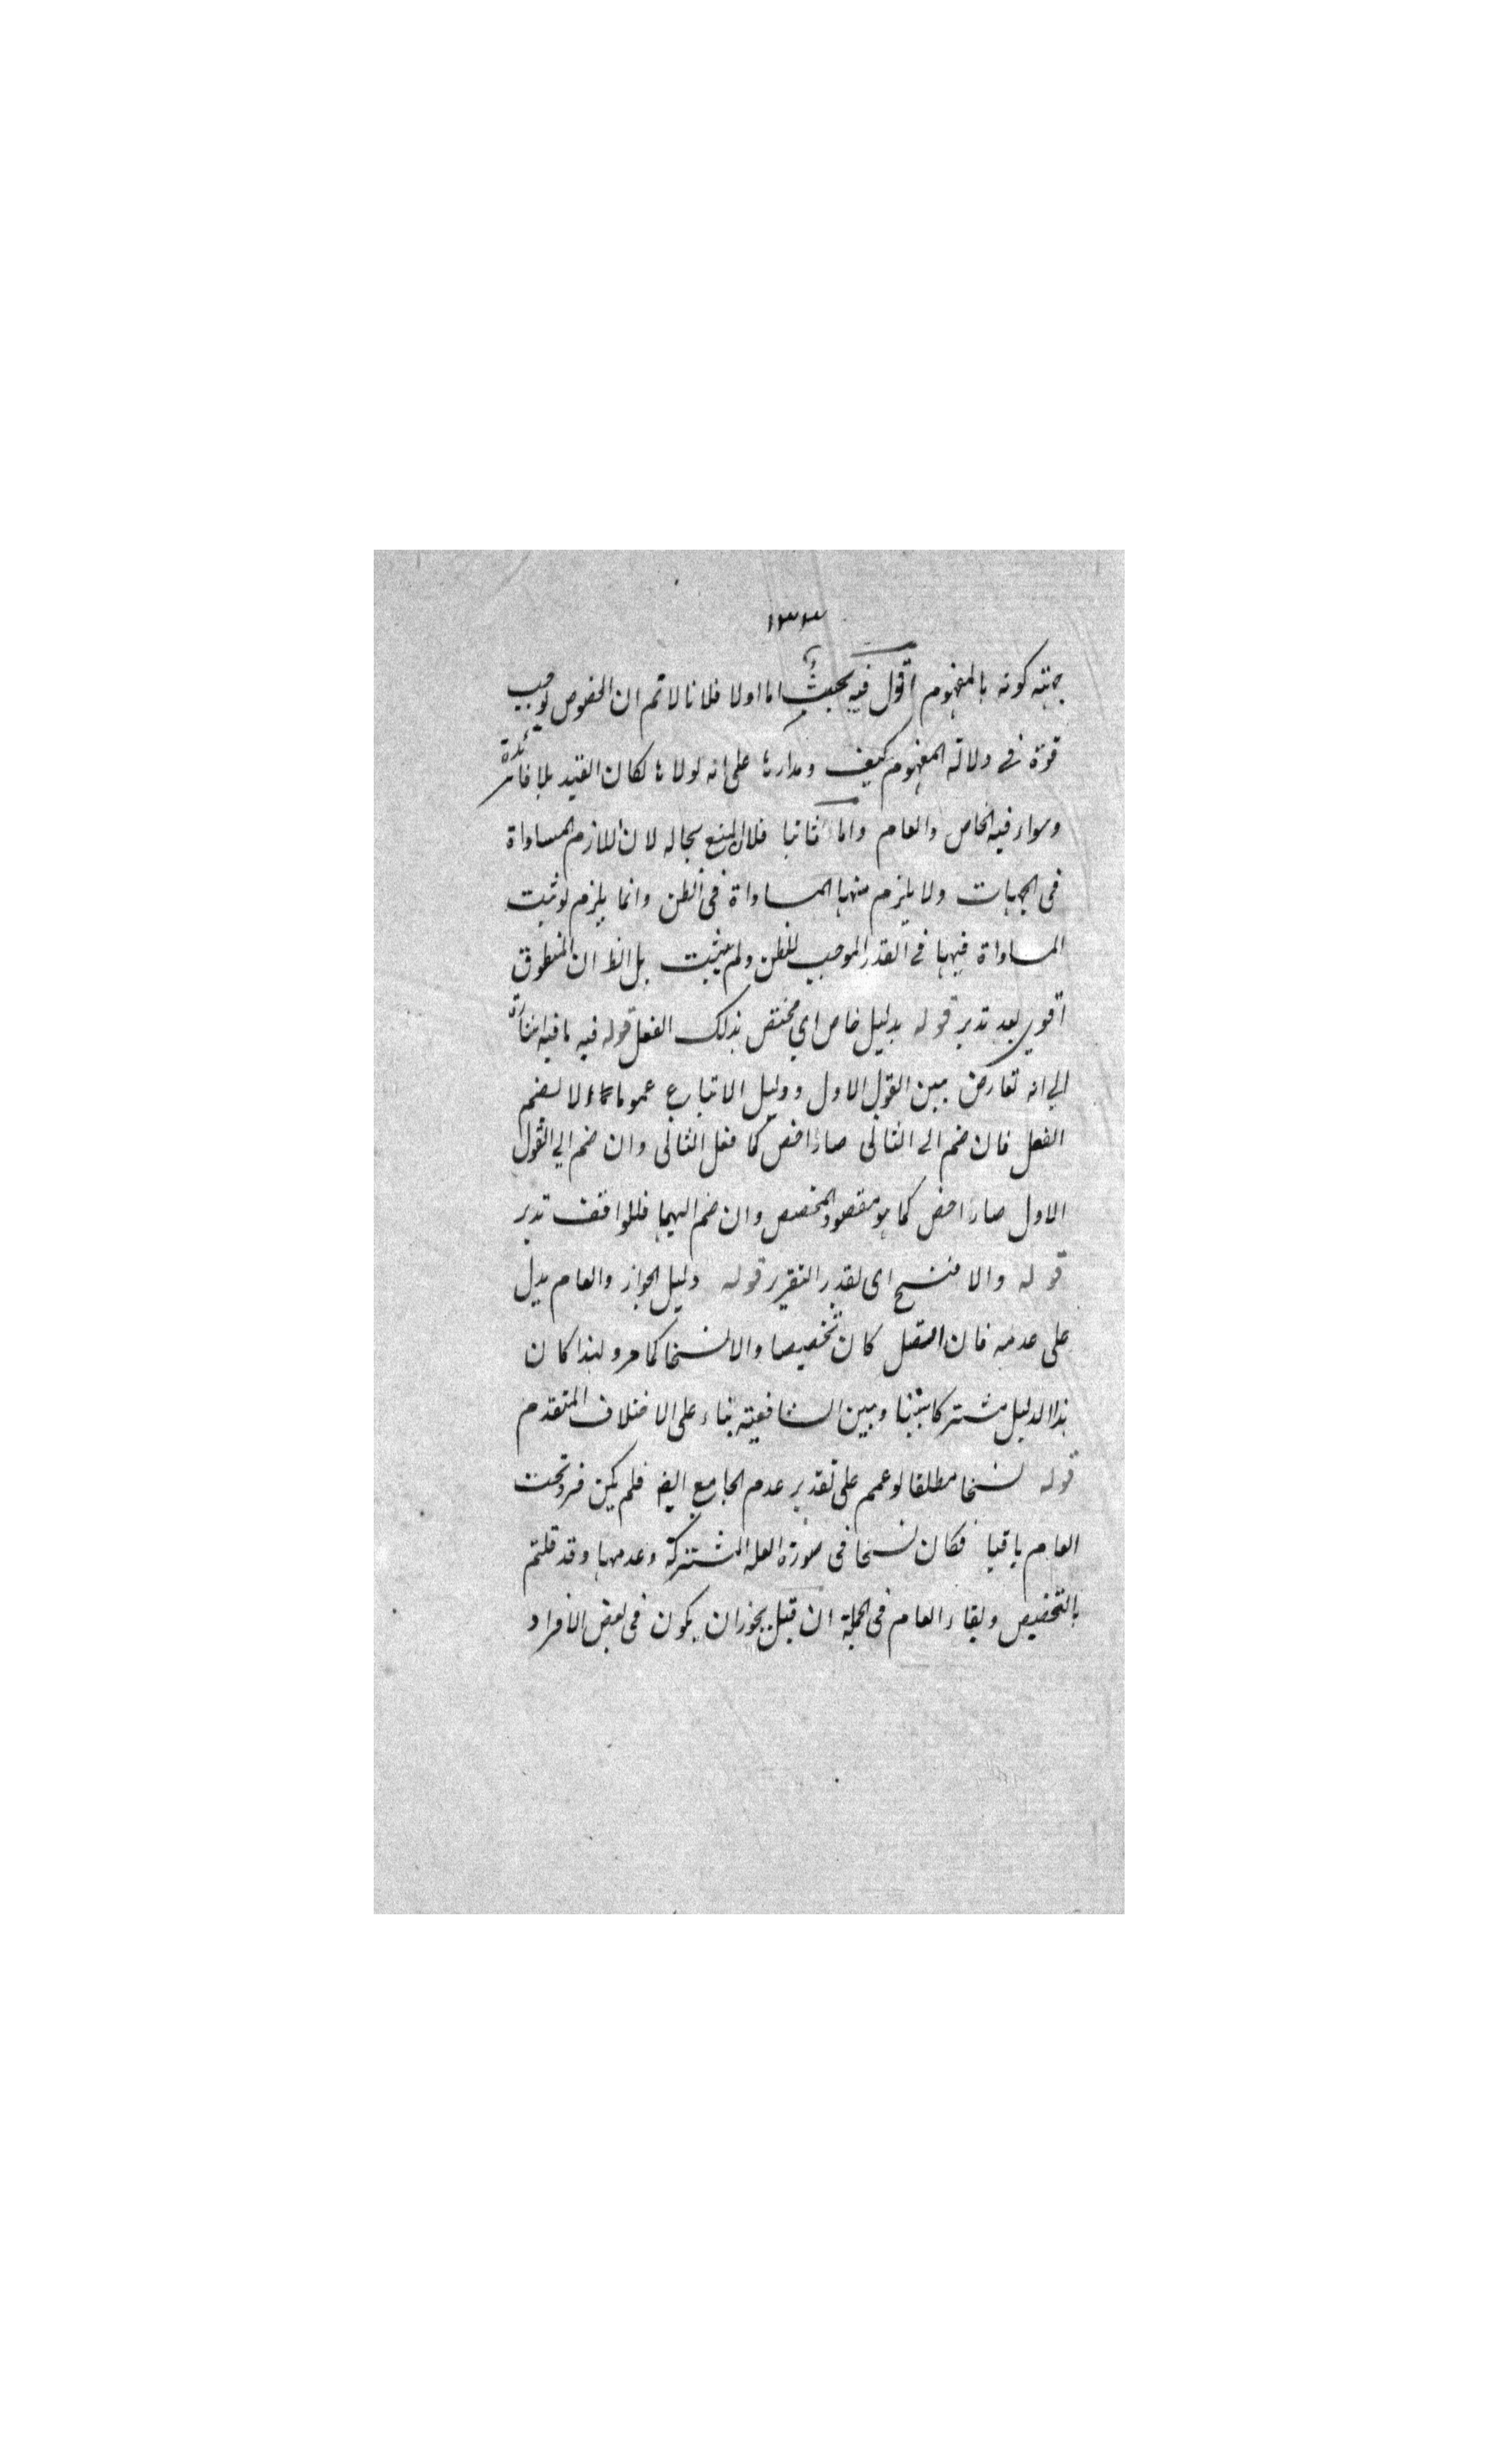 ١٣٣
جهته كونه بالمفهوم اقول فيه بحث اما اولا فلانا لا نم ان الخصوص يوجب
قوة في دلالة المفهوم كيف ومدارها على انه لولاها لكان القيد بلا فائدة
وسواء فيه الخاص والعام واما ثانيا فلان المنع بحاله لان اللازم المساواة
في الجهات ولا يلزم منها المساواة في الظن وانما يلزم لو ثبت
المساواة فيها في القدر الموجب للظن ولم يثبت بل الظ ان المنطوق
اقوى بعد تدبر قوله بدليل خاص اي مختص بذلك الفعل قوله فيه ما فيه اشارة
الى انه تعارض بين القول الاول ودليل الاتباع عموما الا لضم
الفعل فان ضم الى الثاني صار اخص كا فعل الثاني وان ضم الى القول
الاول صار اخص كما هو مقصود المخصص وان ضم اليهما فللواقف تدبر
قوله والا فنسخ اى لقدر التقرير قوله دليل الجواز والعام يدل
على عدمه فان اتصل كان تخصيصا والا نسخا كما مر ولهذا كان
هذا الدليل مشتركا بيننا وبين الشافعية بناء على الاختلاف المتقدم
قوله نسخا مطلقا لو عمم على تقدير عدم الجامع ايضا فلم يكن فرد تحت
العام باقيا فكان نسخا في صورة العلة المشتركة وعدمها وقد قلتم
بالتخصيص وبقاء العام في الجملة ان قيل يجوز ان يكون في بعض الافراد